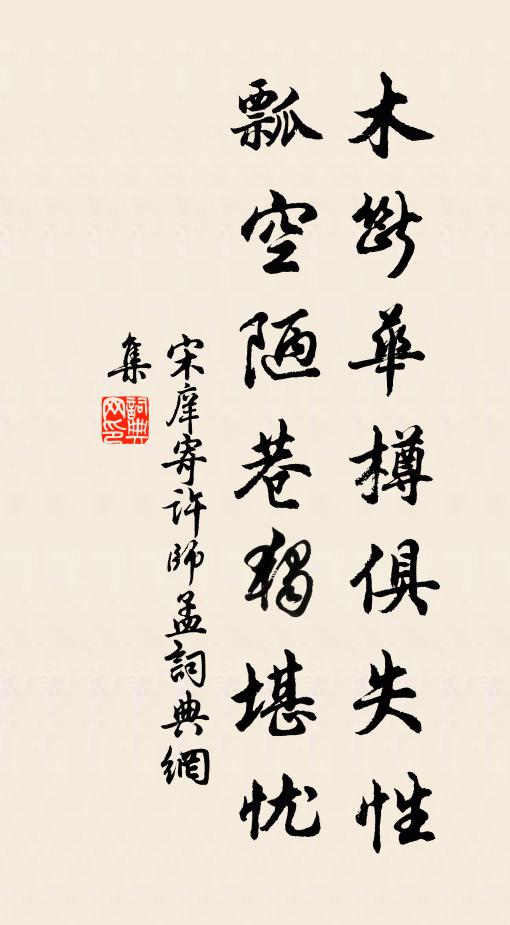 木斷華樽俱失性
瓢空陋巷獨堪忧
宋庠寄許師孟詞典網
集
詞典網印